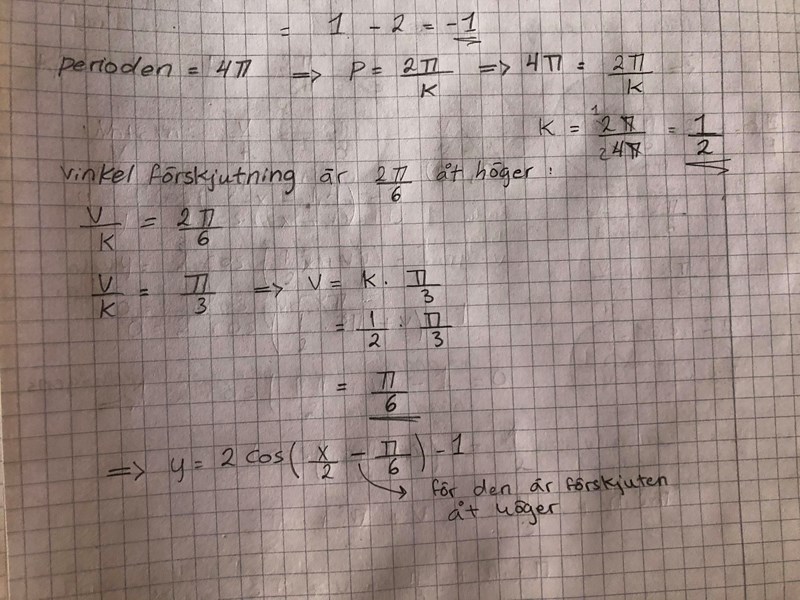 = 1 - 2 = -1
perioden = 4π ⇒ P = 2π/K ⇒ 4π = 2π/K
K = ¹2π/₂4π = 1/2
vinkel förskjutning är 2π/6 åt höger:
V/K = 2π/6
V/K = π/3 ⇒ V = K · π/3
= 1/2 · π/3
= π/6
⇒ y = 2 cos(x/2 - π/6) - 1
för den är förskjuten
åt höger